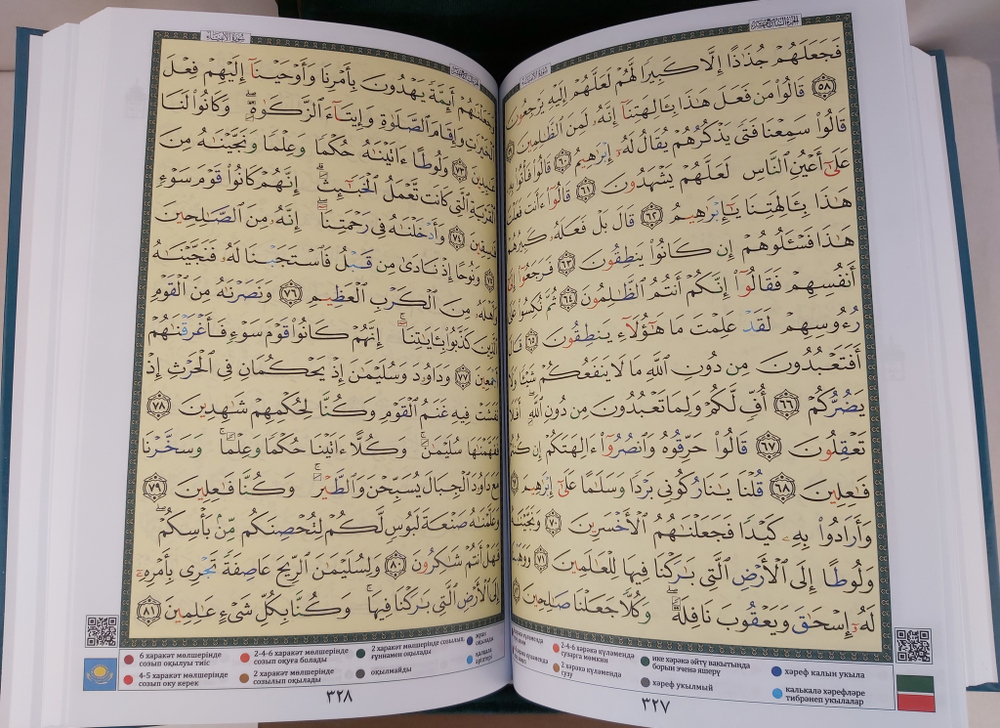 سُورَةُ الْأَنبِيَاءِ
فَجَعَلَهُمْ جُذَٰذًا إِلَّا كَبِيرًا لَّهُمْ لَعَلَّهُمْ إِلَيْهِ يَرْجِعُونَ
٥٨ قَالُوا۟ مَن فَعَلَ هَٰذَا بِـَٔالِهَتِنَآ إِنَّهُۥ لَمِنَ ٱلظَّٰلِمِينَ
قَالُوا۟ سَمِعْنَا فَتًى يَذْكُرُهُمْ يُقَالُ لَهُۥٓ إِبْرَٰهِيمُ ٦٠ قَالُوا۟ فَأْتُوا۟
عَلَىٰٓ أَعْيُنِ ٱلنَّاسِ لَعَلَّهُمْ يَشْهَدُونَ ٦١ قَالُوٓا۟ ءَأَنتَ
هَٰذَا بِـَٔالِهَتِنَا يَٰٓإِبْرَٰهِيمُ ٦٢ قَالَ بَلْ فَعَلَهُۥ كَبِيرُهُمْ
هَٰذَا فَسْـَٔلُوهُمْ إِن كَانُوا۟ يَنطِقُونَ ٦٣ فَرَجَعُوٓا۟
أَنفُسِهِمْ فَقَالُوٓا۟ إِنَّكُمْ أَنتُمُ ٱلظَّٰلِمُونَ ٦٤ ثُمَّ نُكِسُوا۟
رُءُوسِهِمْ لَقَدْ عَلِمْتَ مَا هَٰٓؤُلَآءِ يَنطِقُونَ ٦٥ قَالَ
أَفَتَعْبُدُونَ مِن دُونِ ٱللَّهِ مَا لَا يَنفَعُكُمْ شَيْـًٔا وَلَا
يَضُرُّكُمْ ٦٦ أُفٍّ لَّكُمْ وَلِمَا تَعْبُدُونَ مِن دُونِ ٱللَّهِ أَفَلَا
تَعْقِلُونَ ٦٧ قَالُوا۟ حَرِّقُوهُ وَٱنصُرُوٓا۟ ءَالِهَتَكُمْ إِن
فَٰعِلِينَ ٦٨ قُلْنَا يَٰنَارُ كُونِى بَرْدًا وَسَلَٰمًا عَلَىٰٓ إِبْرَٰهِيمَ
وَأَرَادُوا۟ بِهِۦ كَيْدًا فَجَعَلْنَٰهُمُ ٱلْأَخْسَرِينَ ٧٠
وَلُوطًا إِلَى ٱلْأَرْضِ ٱلَّتِى بَٰرَكْنَا فِيهَا لِلْعَٰلَمِينَ ٧١
لَهُۥٓ إِسْحَٰقَ وَيَعْقُوبَ نَافِلَةً وَكُلًّا جَعَلْنَا صَٰلِحِينَ
2-4-6 хәрәкә күләмендә сузарга мөмкин
2 хәрәкә күләмендә сузу
ике хәрәкә әйтү вакытында борын эченә яшерү
хәреф укылмый
хәреф калын укыла
калькалә хәрефләре тибрәнеп укылалар
٣٢٧
سُورَةُ الْأَنبِيَاءِ
وَجَعَلْنَٰهُمْ أَئِمَّةً يَهْدُونَ بِأَمْرِنَا وَأَوْحَيْنَآ إِلَيْهِمْ فِعْلَ
ٱلْخَيْرَٰتِ وَإِقَامَ ٱلصَّلَوٰةِ وَإِيتَآءَ ٱلزَّكَوٰةِ وَكَانُوا۟ لَنَا
عَٰبِدِينَ ٧٣ وَلُوطًا ءَاتَيْنَٰهُ حُكْمًا وَعِلْمًا وَنَجَّيْنَٰهُ مِنَ
ٱلْقَرْيَةِ ٱلَّتِى كَانَت تَّعْمَلُ ٱلْخَبَٰٓئِثَ إِنَّهُمْ كَانُوا۟ قَوْمَ سَوْءٍ
فَٰسِقِينَ ٧٤ وَأَدْخَلْنَٰهُ فِى رَحْمَتِنَآ إِنَّهُۥ مِنَ ٱلصَّٰلِحِينَ
٧٥ وَنُوحًا إِذْ نَادَىٰ مِن قَبْلُ فَٱسْتَجَبْنَا لَهُۥ فَنَجَّيْنَٰهُ
وَأَهْلَهُۥ مِنَ ٱلْكَرْبِ ٱلْعَظِيمِ ٧٦ وَنَصَرْنَٰهُ مِنَ ٱلْقَوْمِ
ٱلَّذِينَ كَذَّبُوا۟ بِـَٔايَٰتِنَآ إِنَّهُمْ كَانُوا۟ قَوْمَ سَوْءٍ فَأَغْرَقْنَٰهُمْ
أَجْمَعِينَ ٧٧ وَدَاوُۥدَ وَسُلَيْمَٰنَ إِذْ يَحْكُمَانِ فِى ٱلْحَرْثِ إِذْ
نَفَشَتْ فِيهِ غَنَمُ ٱلْقَوْمِ وَكُنَّا لِحُكْمِهِمْ شَٰهِدِينَ ٧٨
فَفَهَّمْنَٰهَا سُلَيْمَٰنَ وَكُلًّا ءَاتَيْنَا حُكْمًا وَعِلْمًا وَسَخَّرْنَا
مَعَ دَاوُۥدَ ٱلْجِبَالَ يُسَبِّحْنَ وَٱلطَّيْرَ وَكُنَّا فَٰعِلِينَ ٧٩
وَعَلَّمْنَٰهُ صَنْعَةَ لَبُوسٍ لَّكُمْ لِتُحْصِنَكُم مِّنۢ بَأْسِكُمْ
فَهَلْ أَنتُمْ شَٰكِرُونَ ٨٠ وَلِسُلَيْمَٰنَ ٱلرِّيحَ عَاصِفَةً تَجْرِى بِأَمْرِهِۦٓ
إِلَى ٱلْأَرْضِ ٱلَّتِى بَٰرَكْنَا فِيهَا وَكُنَّا بِكُلِّ شَىْءٍ عَٰلِمِينَ ٨١
6 харакәт мөлшерінде созып оқылуы тиіс
4-5 харакәт мөлшерінде созып оқу керек
2-4-6 харакәт мөлшерінде созып оқуға болады
2 харакәт мөлшерінде созылып оқылады
2 харакәт мөлшерінде созылып, ғуннамен оқылады
оқылмайды
٣٢٨